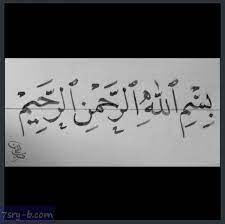 بِسْمِ ٱللَّهِ ٱلرَّحْمَنِ ٱلرَّحِيمِ
7sry-b.com